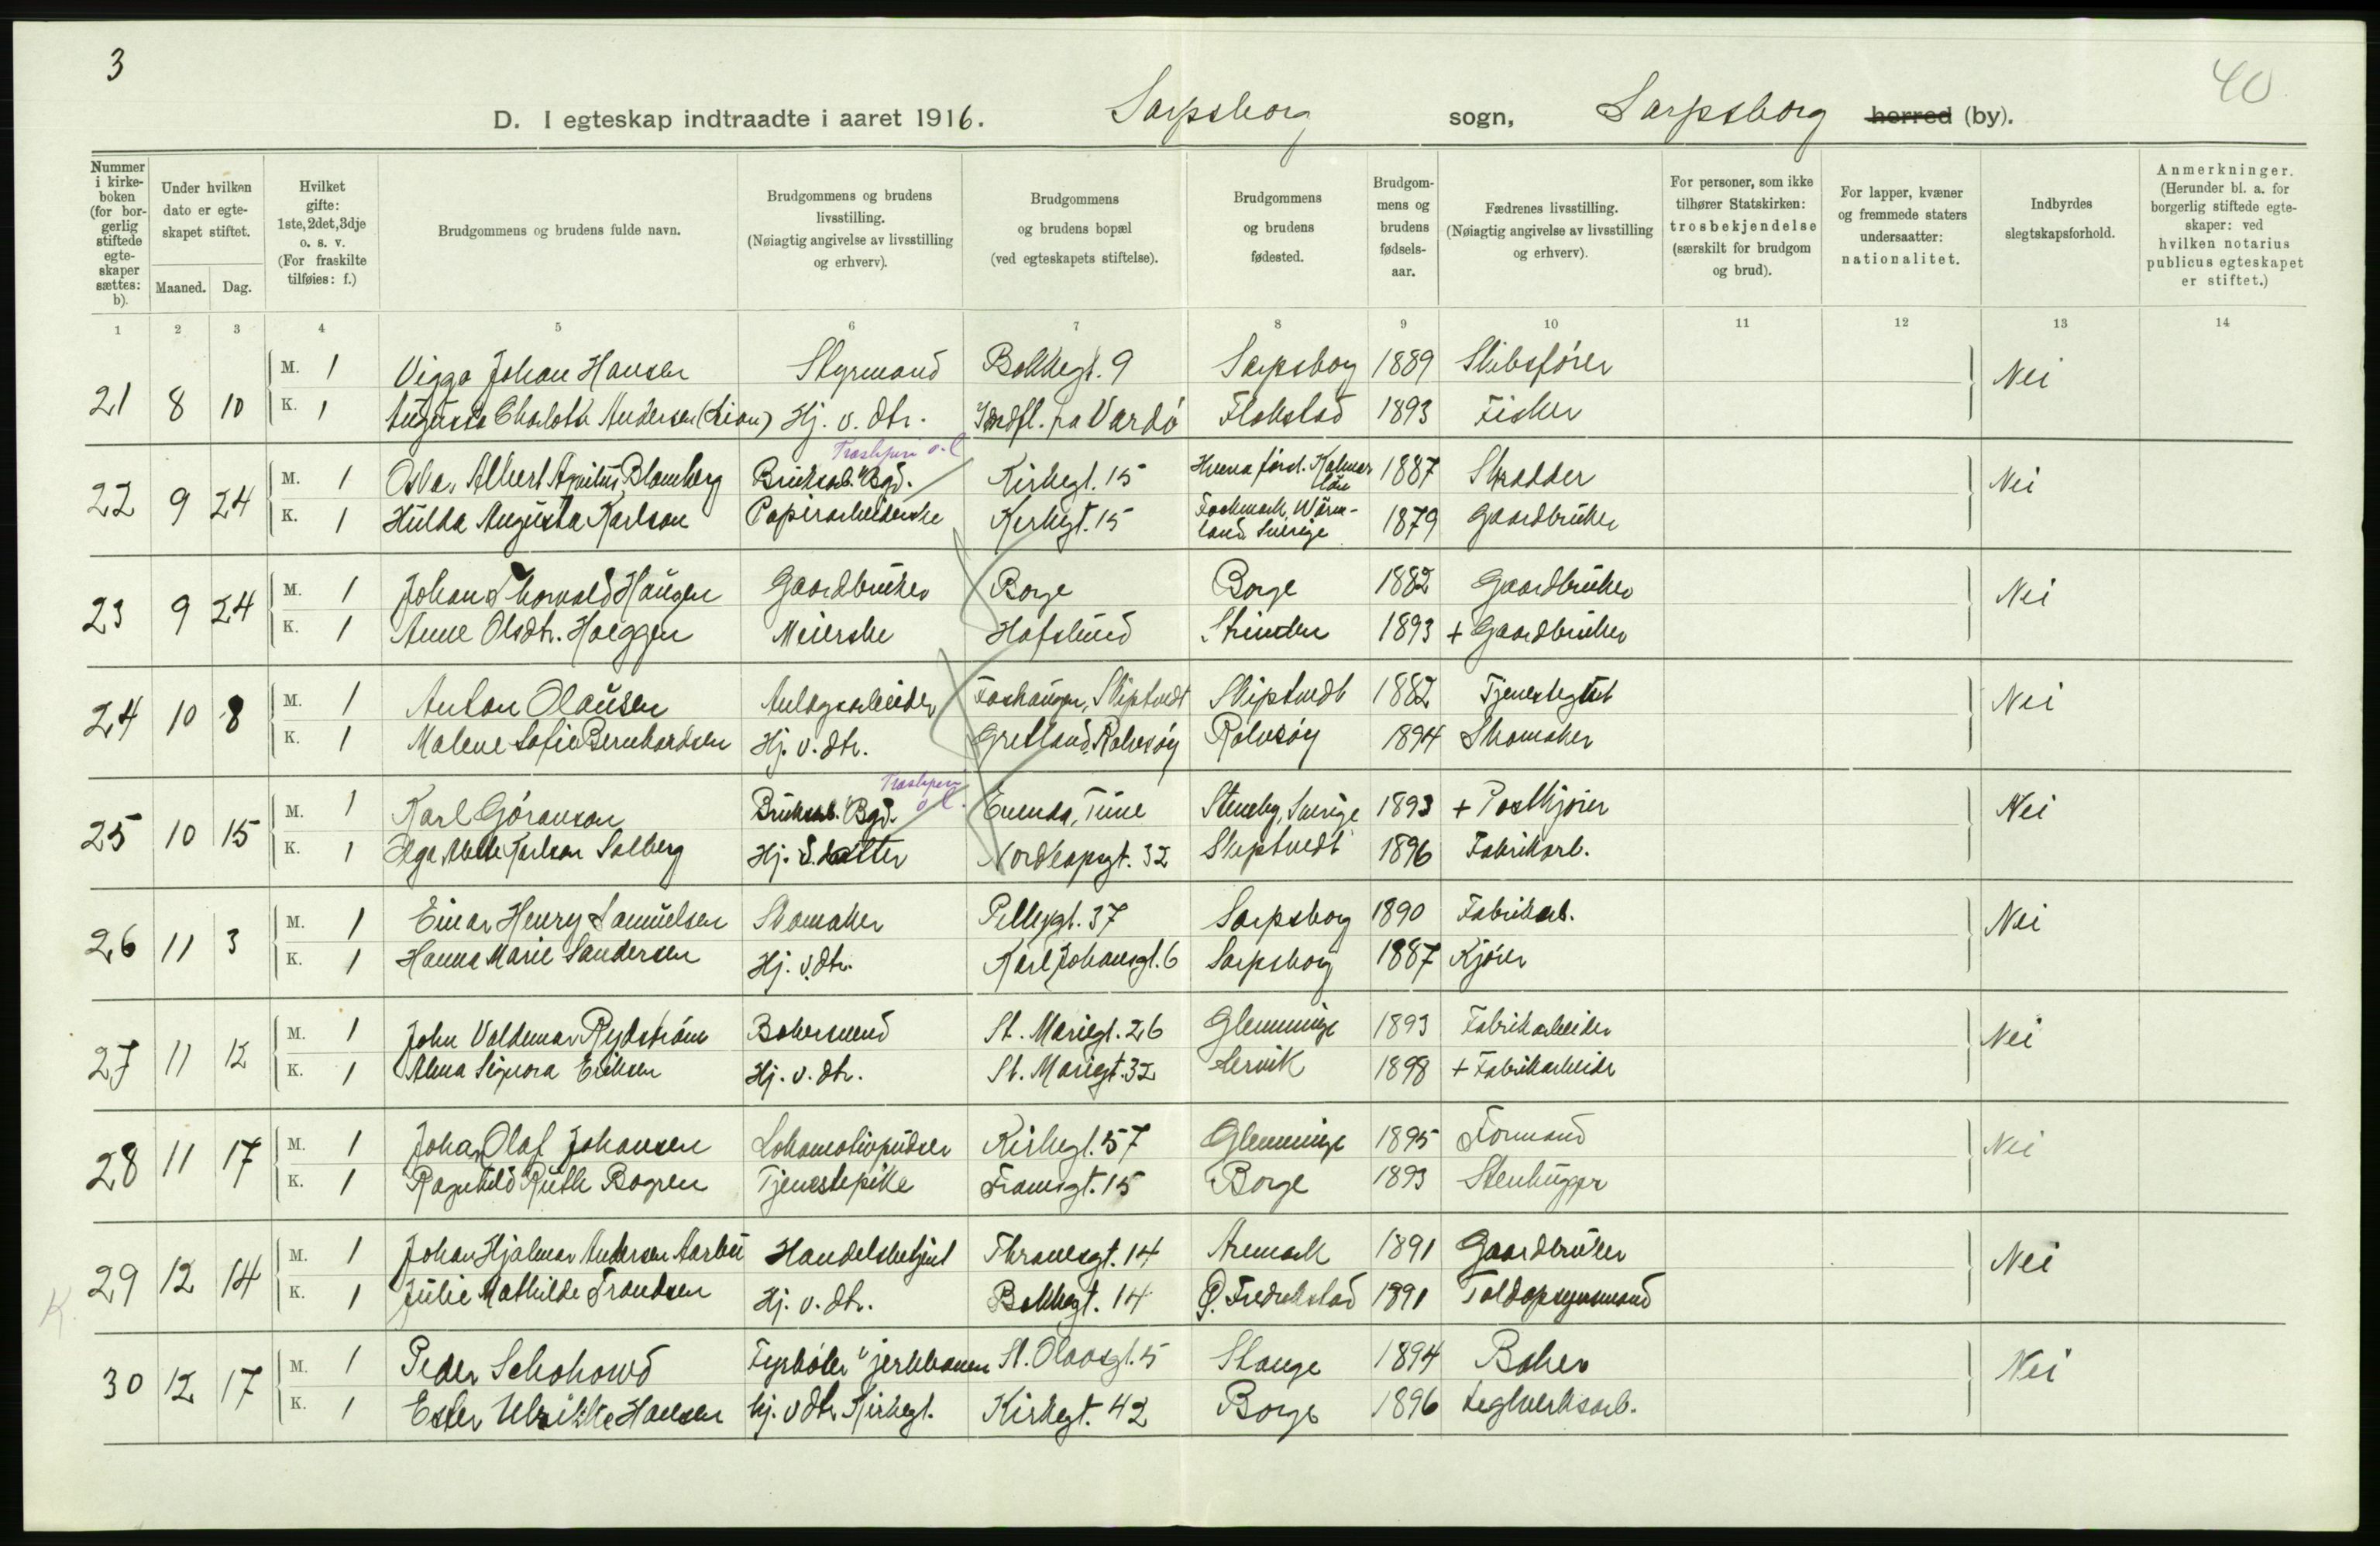 3
40
D. I egteskap indtraadte i aaret 1916. Sarpsborg sogn, Sarpsborg herred (by).
Nummer i kirkeboken (for borgerlig stiftede egteskaper sættes: b).
Under hvilken dato er egteskapet stiftet.
Maaned. Dag.
Hvilket gifte: 1ste, 2det, 3dje o. s. v. (For fraskilte tilføies: f.)
Brudgommens og brudens fulde navn.
Brudgommens og brudens livsstilling. (Nøiagtig angivelse av livsstilling og erhverv).
Brudgommens og brudens bopæl (ved egteskapets stiftelse).
Brudgommens og brudens fødested.
Brudgommens og brudens fødselsaar.
Fædrenes livsstilling. (Nøiagtig angivelse av livsstilling og erhverv).
For personer, som ikke tilhører Statskirken: trosbekjendelse (særskilt for brudgom og brud).
For lapper, kvæner og fremmede staters undersaatter: nationalitet.
Indbyrdes slegtskapsforhold.
Anmerkninger. (Herunder bl. a. for borgerlig stiftede egteskaper: ved hvilken notarius publicus egteskapet er stiftet.)
1 2 3 4 5 6 7 8 9 10 11 12 13 14
21 8 10 M. 1 Viggo Johan Hansen Styrmand Bakkegt. 9 Sarpsborg 1889 Skibsfører Nei
K. 1 Augusta Charlotte Andersen (Lian) Hj. v. dtr. Vardø Flakstad 1893 Fisker
Træsliperi
22 9 24 M. 1 Albert Blomberg Bruksarb. Bgd. Kirkegt. 15 Kalmar län 1887 Skrædder Nei
K. 1 Hulda Augusta Karlson Papirarbeiderske Kirkegt. 15 Wärmland Sverige 1879 Gaardbruker
23 9 24 M. 1 Johan Thorvald Haugen Gaardbruker Borge Borge 1882 Gaardbruker Nei
K. 1 Anne Olsdtr. Hoeggen Meierske Hafslund Strinden 1893 + Gaardbruker
24 10 8 M. 1 Anton Olausen Anlægsarbeider Foshaugen, Skiptvedt Skiptvedt 1882 Tjenestegut Nei
K. 1 Malene Sofie Bernhardsen Hj. v. dtr. Gretland, Rolvsøy Rolvsøy 1894 Skomaker
Træsliperi
25 10 15 M. 1 Karl Göranson Bruksarb. Bgd. Tune Steneby, Sverige 1893 + Postkjører Nei
K. 1 Olga Karlson Solberg Hj. v. datter Nordkapgt. 32 Skiptvedt 1896 Fabrikarb.
26 11 3 M. 1 Einar Henry Samuelsen Skomaker Pellygt. 37 Sarpsborg 1890 Fabrikarb. Nei
K. 1 Hanna Marie Sandersen Hj. v. dtr. Karl Johansgt. 6 Sarpsborg 1887 Kjører
27 11 12 M. 1 John Valdemar Rydström Bakersvend St. Mariegt. 26 Glemminge 1893 Fabrikarbeider Nei
K. 1 Alma Signora Eriksen Hj. v. dtr. St. Mariegt. 32 Lervik 1898 + Fabrikarbeider
28 11 17 M. 1 Johan Olaf Johansen Lokomotivpudser Kirkegt. 57 Glemminge 1895 Formand Nei
K. 1 Ragnhild Ruth Bogren Tjenestepike Framsgt. 15 Borge 1893 Stenhugger
K.
29 12 14 M. 1 Johan Hjalmar Andersen Aarbu Handelsbetjent Thranesgt. 14 Aremark 1891 Gaardbruker Nei
K. 1 Julie Mathilde Frantsen Hj. v. dtr. Bakkegt. 14 Ø. Fredrikstad 1891 Toldopsynsmand
30 12 17 M. 1 Peder Schohowd Fyrbøter v/ jernbanen St. Olavsgt. 5 Stange 1894 Baker Nei
K. 1 Ester Ulrikke Hansen hj. v dtr. Kirkegt. Kirkegt. 42 Borge 1896 Teglverksarb.